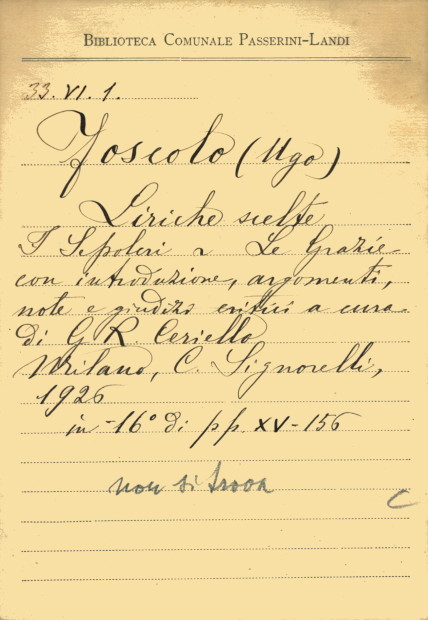 BIBLIOTECA COMUNALE PASSERINI-LANDI
33. VI. 1.
Foscolo (Ugo)
Liriche scelte
I Sepolcri e Le Grazie
con introduzione, argomenti,
note e giudizi critici a cura
di G. R. Ceriello
Milano, C. Signorelli,
1926
in-16° di pp. XV-156
non si trova
C